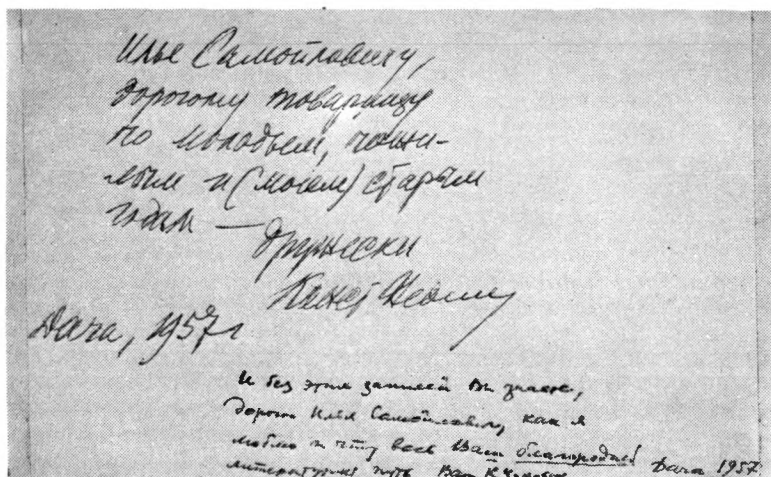 Илье Самойловичу,
дорогому товарищу
по молодым, пожи-
лым и (моем) старым
годам —
дружески
Конст Федин
Дача, 1957 г
И без этих записей Вы знаете,
дорогой Илья Самойлович, как я
люблю и чту весь Ваш благородный
литературный путь Ваш К Чуковский
Дача 1957.